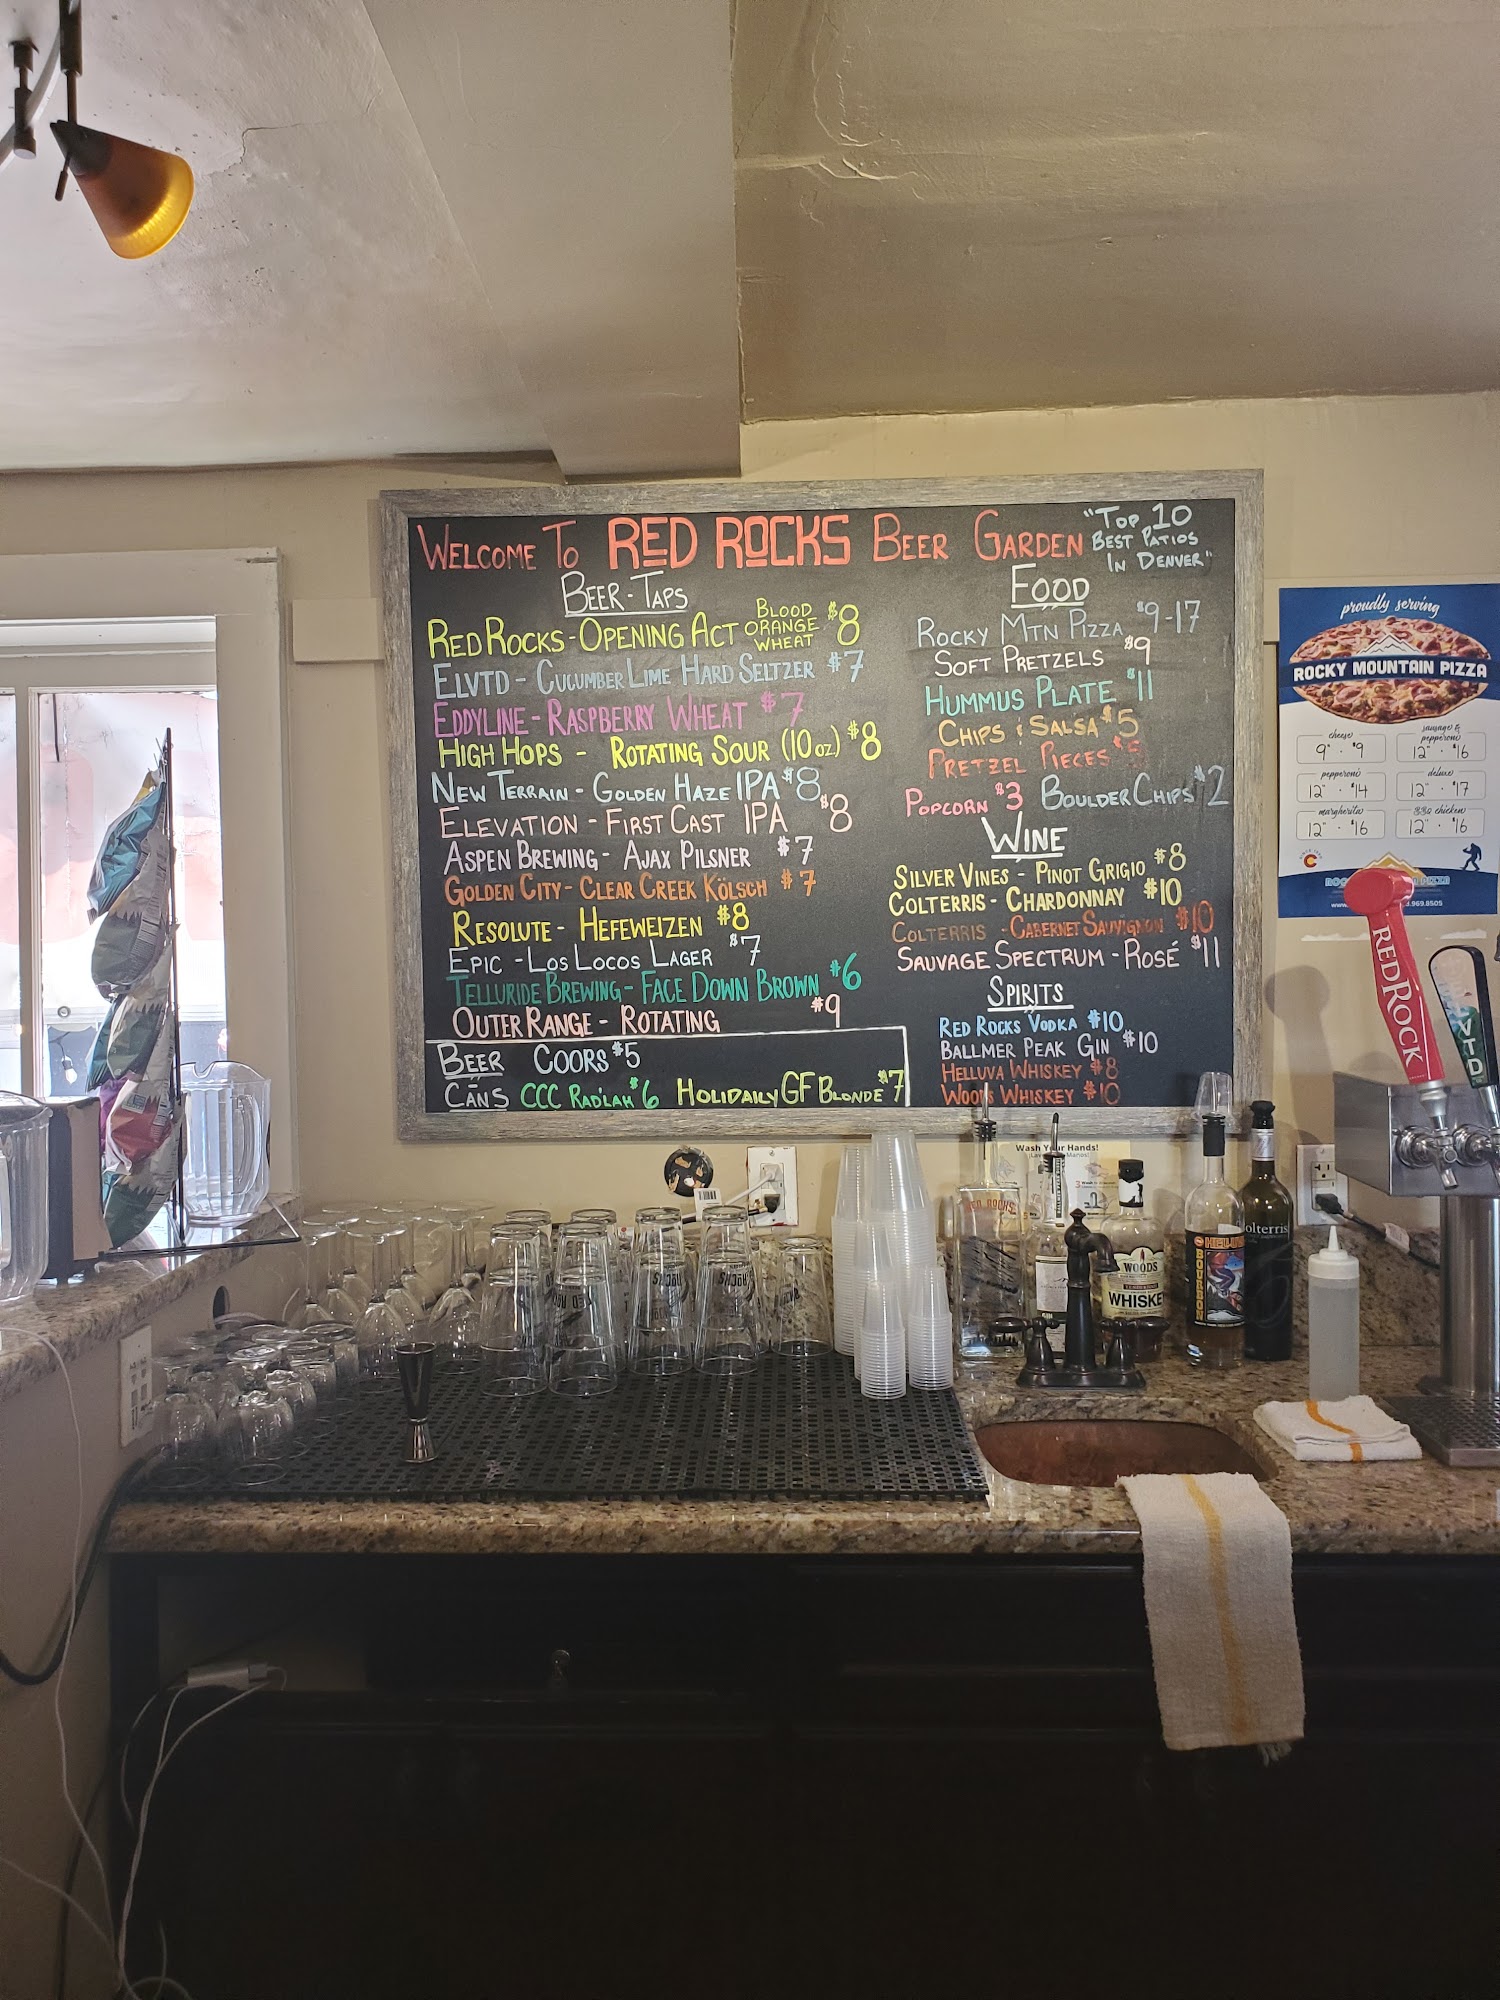 WELCOME TO RED ROCKS BEER GARDEN
"TOP 10
BEST PATIOS
IN DENVER"
BEER-TAPS
RED ROCKS - OPENING ACT BLOOD ORANGE WHEAT $8
ELVTD - CUCUMBER LIME HARD SELTZER $7
EDDYLINE - RASPBERRY WHEAT $7
HIGH HOPS - ROTATING SOUR (10 OZ) $8
NEW TERRAIN - GOLDEN HAZE IPA $8
ELEVATION - FIRST CAST IPA $8
ASPEN BREWING - AJAX PILSNER $7
GOLDEN CITY - CLEAR CREEK KÖLSCH $7
RESOLUTE - HEFEWEIZEN $8
EPIC - LOS LOCOS LAGER $7
TELLURIDE BREWING - FACE DOWN BROWN $6
OUTER RANGE - ROTATING $9
BEER CANS
COORS $5
CCC RAD'LAH $6 HOLIDAILY GF BLONDE $7
FOOD
ROCKY MTN PIZZA $9-17
SOFT PRETZELS $9
HUMMUS PLATE $11
CHIPS & SALSA $5
PRETZEL PIECES $5
POPCORN $3 BOULDER CHIPS $2
WINE
SILVER VINES - PINOT GRIGIO $8
COLTERRIS - CHARDONNAY $10
COLTERRIS - CABERNET SAUVIGNON $10
SAUVAGE SPECTRUM - ROSÉ $11
SPIRITS
RED ROCKS VODKA $10
BALLMER PEAK GIN $10
HELLUVA WHISKEY $8
WOODS WHISKEY $10
proudly serving
ROCKY MOUNTAIN PIZZA
cheese
9" · $9
sausage & pepperoni
12" · $16
pepperoni
12" · $14
deluxe
12" · $17
margherita
12" · $16
BBQ chicken
12" · $16
RED ROCK
VTD
Wash Your Hands!
RED ROCKS
WOODS
WHISKE
BOURBON
olterris